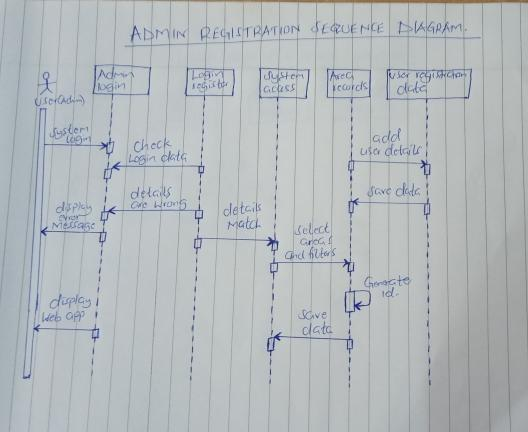 ADMIN REGISTRATION SEQUENCE DIAGRAM.
User(Admin)
Admin
login
Login
register
System
access
Area
records
User registration
data
System
login
Check
Login data
add
user details
details
are wrong
save data
display
error
Message
details
Match
select
areas
and filters
Generate
id.
display
Web app
save
data